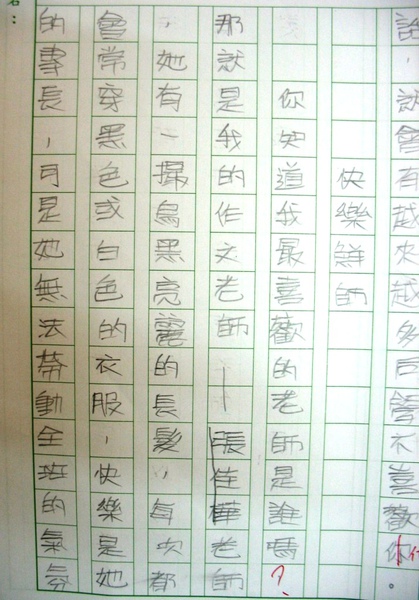 ，就會有越來越多同學不喜歡你。
快樂鮮師
你知道我最喜歡的老師是誰嗎？
那就是我的作文老師——張佳樺老師
，她有一撮烏黑亮麗的長髮，每次都
會常穿黑色或白色的衣服，快樂是她
的專長，可是她無法帶動全班的氣氛